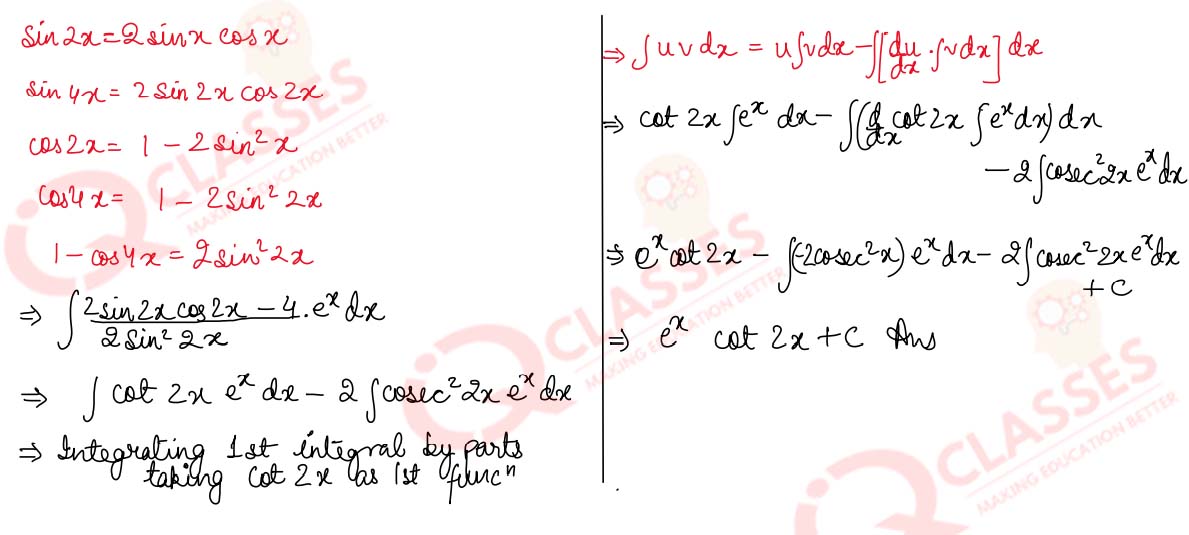 sin2x=2sinx cosx
sin 4x= 2 sin 2x cos 2x
cos2x= 1 - 2sin²x
cos4x= 1 - 2sin² 2x
1 - cos4x = 2sin²2x
⇒ ∫ (2sin2x cos2x - 4)/(2sin² 2x) . eˣ dx
⇒ ∫ cot 2x eˣ dx - 2 ∫cosec²2x eˣ dx
⇒ Integrating 1st integral by parts
taking cot 2x as 1st funcⁿ
⇒ ∫ u v dx = u∫vdx - ∫[du/dx . ∫vdx] dx
⇒ cot 2x ∫eˣ dx - ∫(d/dx cot 2x ∫eˣ dx) dx
- 2∫cosec²2x eˣ dx
⇒ eˣ cot 2x - ∫(-2cosec²x) eˣ dx - 2∫cosec²2x eˣ dx
+ C
⇒ eˣ cot 2x + C Ans
CLASSES
MAKING EDUCATION BETTER
CLASSES
MAKING EDUCATION BETTER
CLASSES
MAKING EDUCATION BETTER